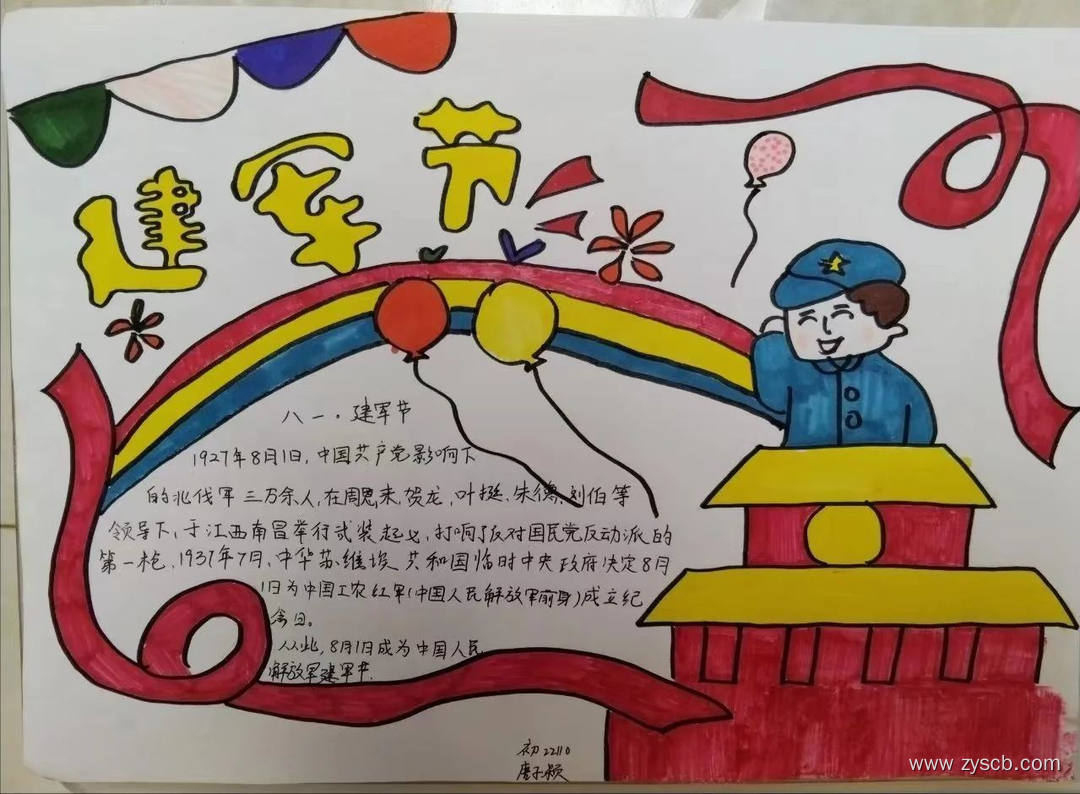 建军节
八一·建军节
1927年8月1日,中国共产党影响下
的北伐军三万余人,在周恩来,贺龙,叶挺,朱德,刘伯等
领导下,于江西南昌举行武装起义,打响了反对国民党反动派的
第一枪,1937年7月,中华苏维埃共和国临时中央政府决定8月
1日为中国工农红军(中国人民解放军前身)成立纪
念日。
从此,8月1日成为中国人民
解放军建军节.
初22110
www.zyscb.com